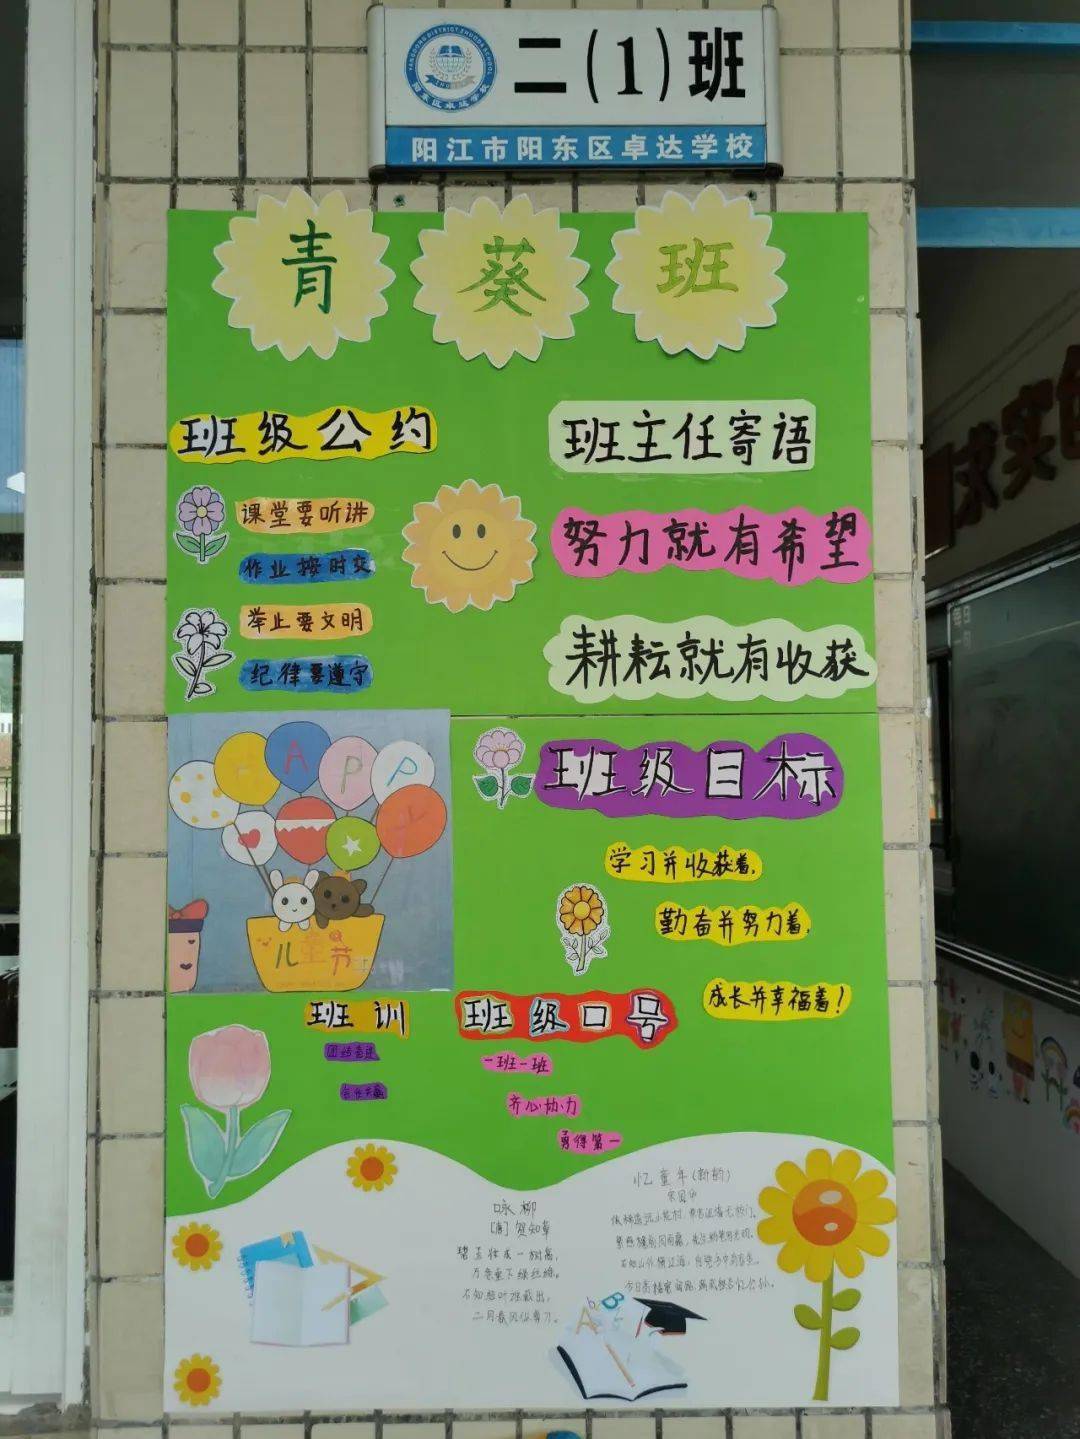 二(1)班
YANGDONG DISTRICT ZHUODA SCHOOL
阳东区卓达学校
阳江市阳东区卓达学校
青葵班
班级公约
课堂要听讲
作业按时交
举止要文明
纪律要遵守
班主任寄语
努力就有希望
耕耘就有收获
HAPPY
儿童节
班级目标
学习并收获着,
勤奋并努力着,
成长并幸福着!
班训
团结奋进
合作共赢
班级口号
一班一班
齐心协力
勇得第一
咏柳
[唐] 贺知章
碧玉妆成一树高,
万条垂下绿丝绦。
不知细叶谁裁出,
二月春风似剪刀。
忆童年(新韵)
A
B
b